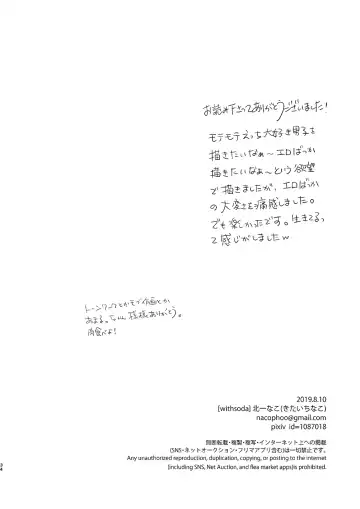 お読み下さってありがとうございました!
モテモテえっち大好き男子を
描きたいなぁ〜エロばっか
描きたいなぁ〜という欲望
で描きましたが、エロばっか
の大変さを痛感しました。
でも楽しかったです。生きてるっ
て感じがしましたw
トーンワークとかモブ作画とか
あまる。ちゃん 様様ありがとう。
肉食べよ!
2019.8.10
[withsoda] 北一なこ(きたいちなこ)
nacophoo@gmail.com
pixiv id=1087018
無断転載・複製・複写・インターネット上への掲載
(SNS・ネットオークション・フリマアプリ含む)は一切禁止です。
Any unauthorized reproduction, duplication, copying, or posting to the internet
[including SNS, Net Auction, and flea market apps]is prohibited.
34